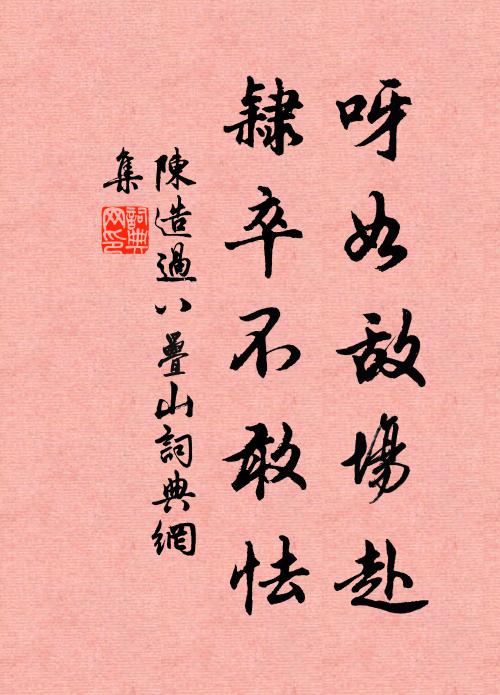 呀如敌場赴
隸卒不敢怯
陳造過八疊山詞典網
集
詞典
网印